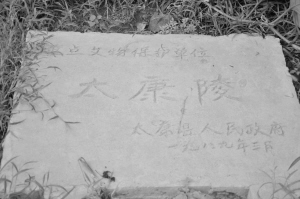 文物保护单位
太康陵
太康县人民政府
一九八九年三月